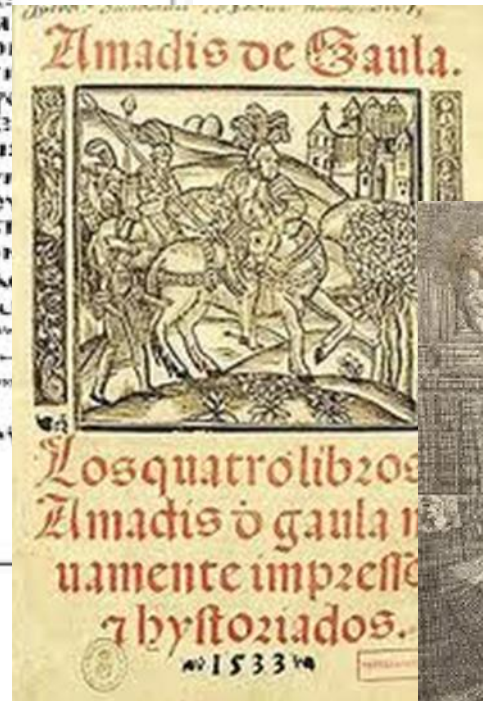 Amadis de Gaula.
Los quatro libros
Amadis d̄ gaula n
uamente impresso
⁊ hystoriados.
1533